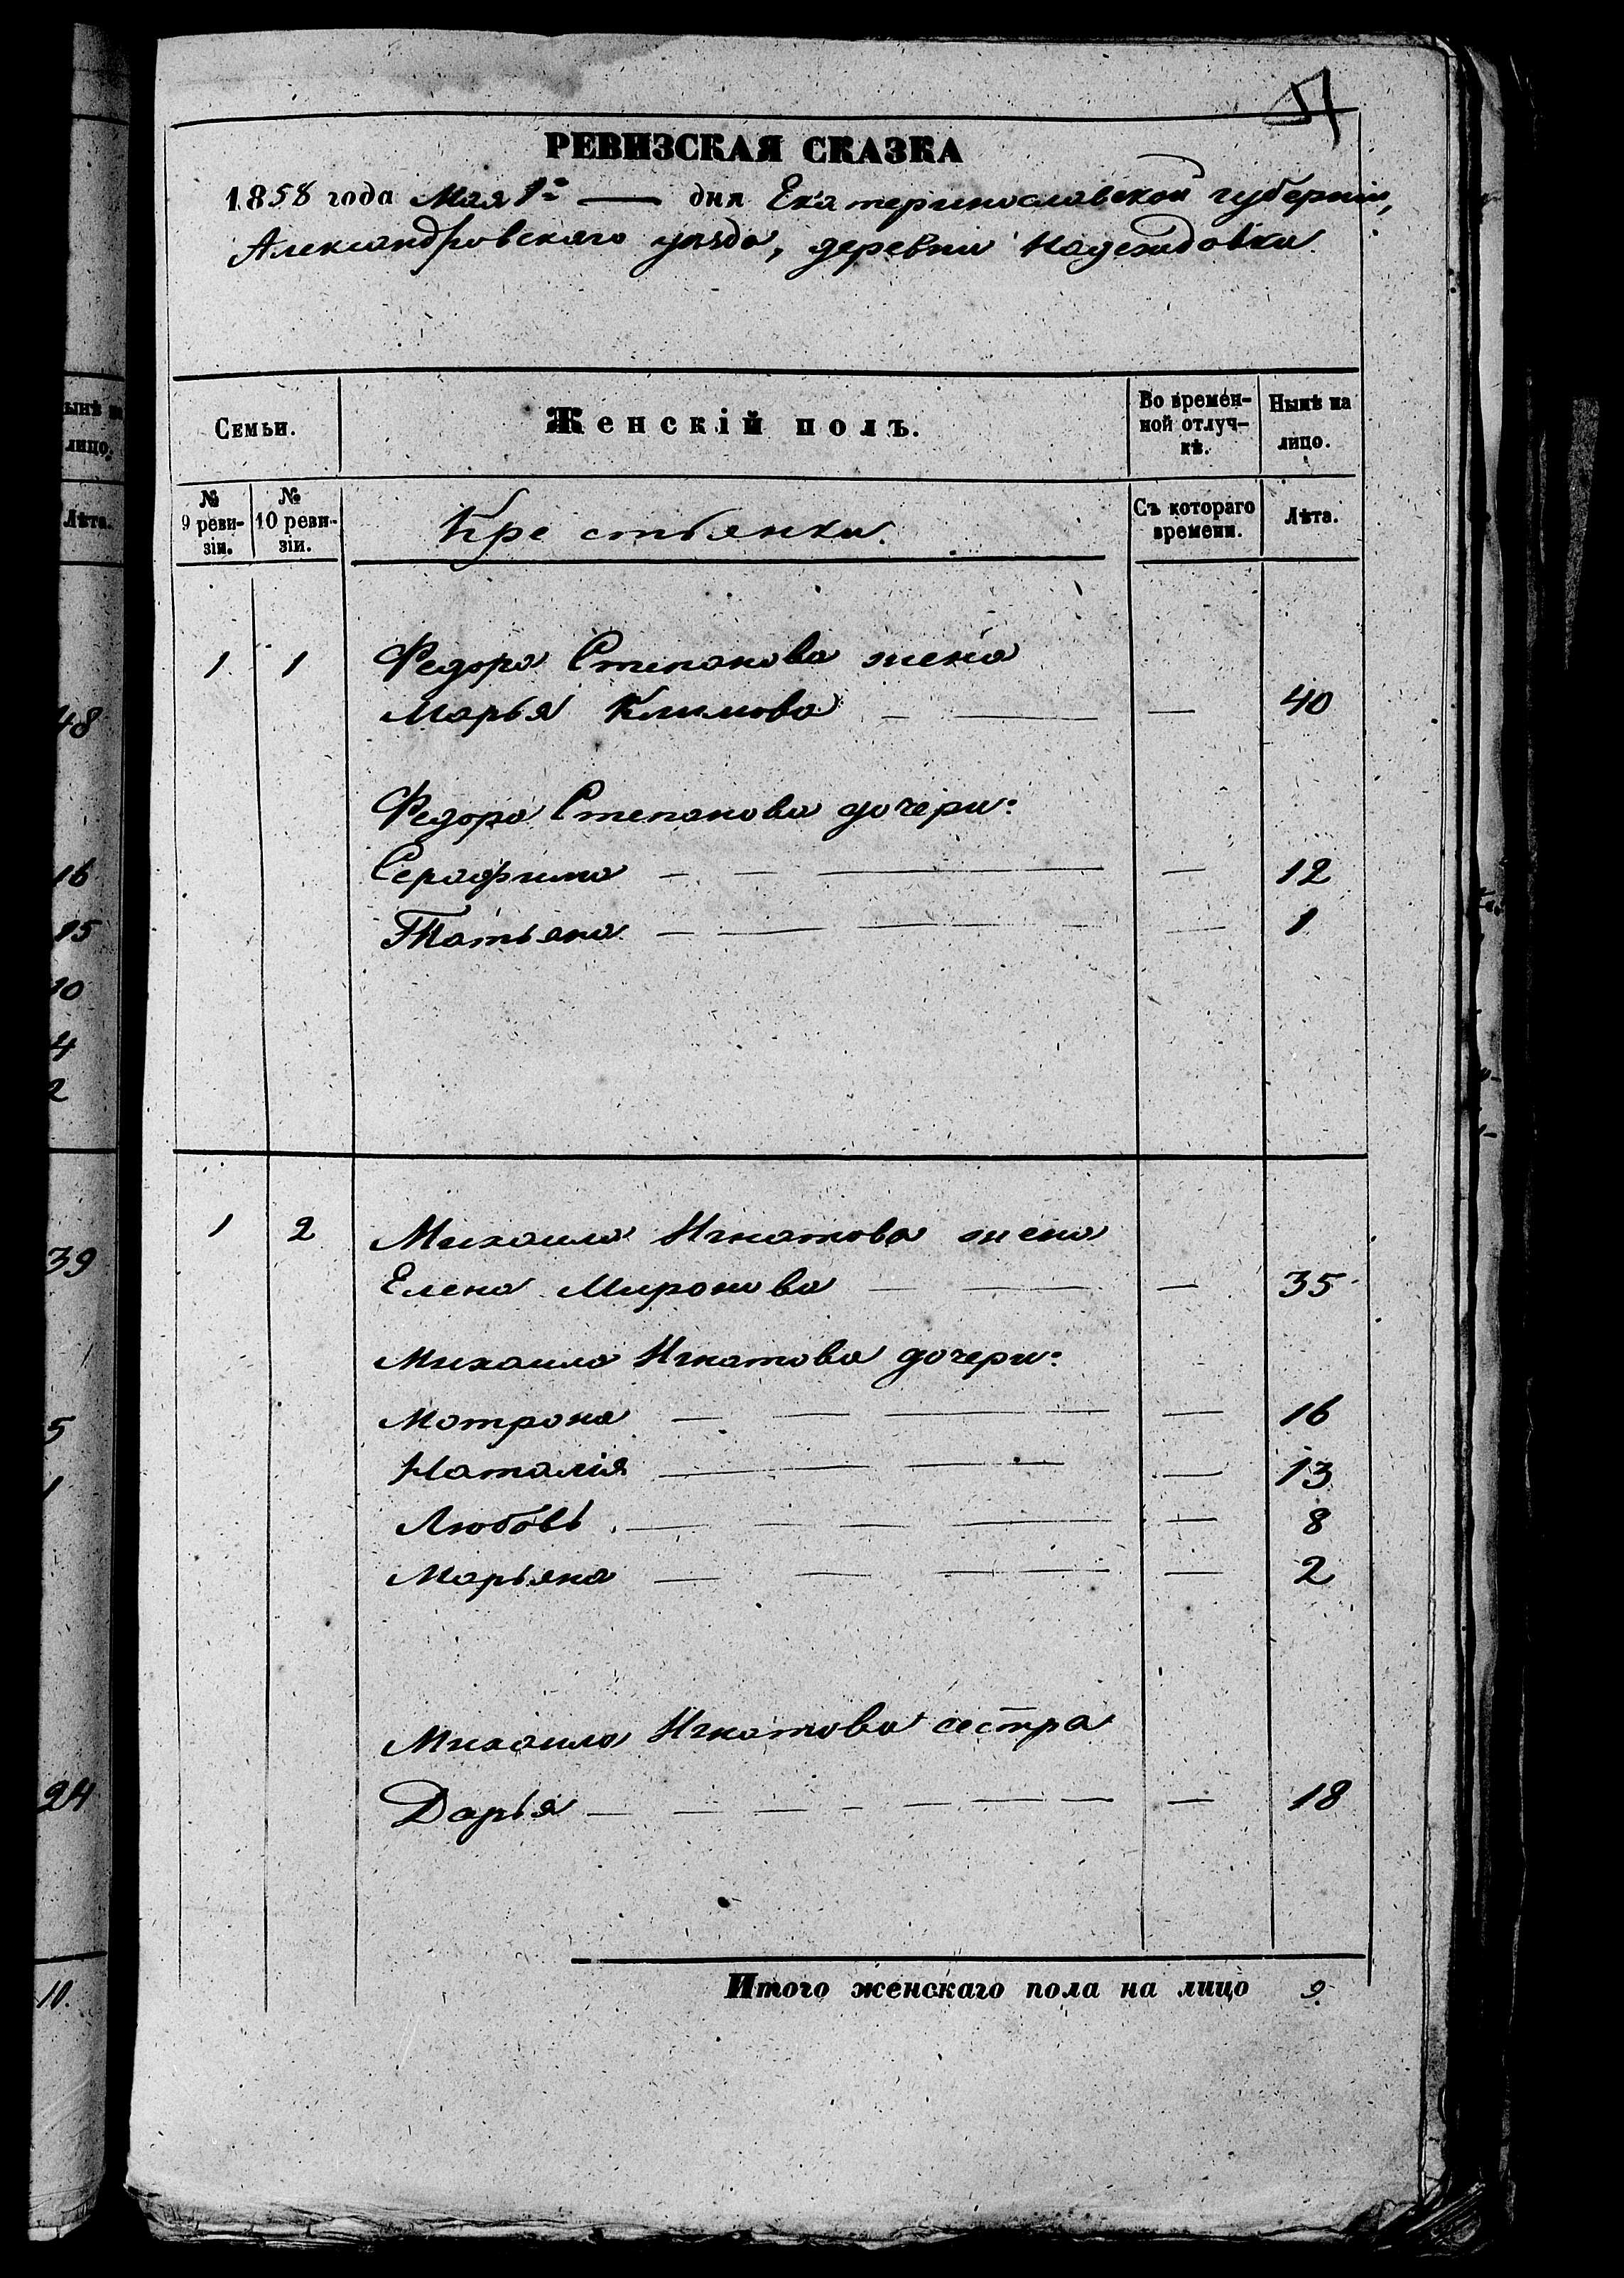 РЕВИЗСКАЯ СКАЗКА
1858 года Мая 1го — дня Екатеринославской губерніи,
Александровскаго уѣзда, деревни Надеждовки
Семьи.
Женскій полъ.
Во времен-
ной отлуч-
кѣ.
Нынѣ на
лицо.
№
9 реви-
зіи.
№
10 реви-
зіи.
Крестьянки.
Съ котораго
времени.
Лѣта.
1 1 Федора Степанова жена
Марья Климова — — — 40
Федора Степанова дочери:
Серафима — — — — 12
Татьяна — — — — 1
1 2 Михаила Игнатова жена
Елена Миронова — — — 35
Михаила Игнатова дочери:
Мотрона — — — — 16
Наталія — — — — 13
Любовь — — — — — 8
Марьяна — — — — 2
Михаила Игнатова сестра
Дарья — — — — — — — — 18
Итого женскаго пола на лицо 9.
ынѣ
лицо.
Лѣта.
48
16
15
10
4
2
39
5
1
24
10.